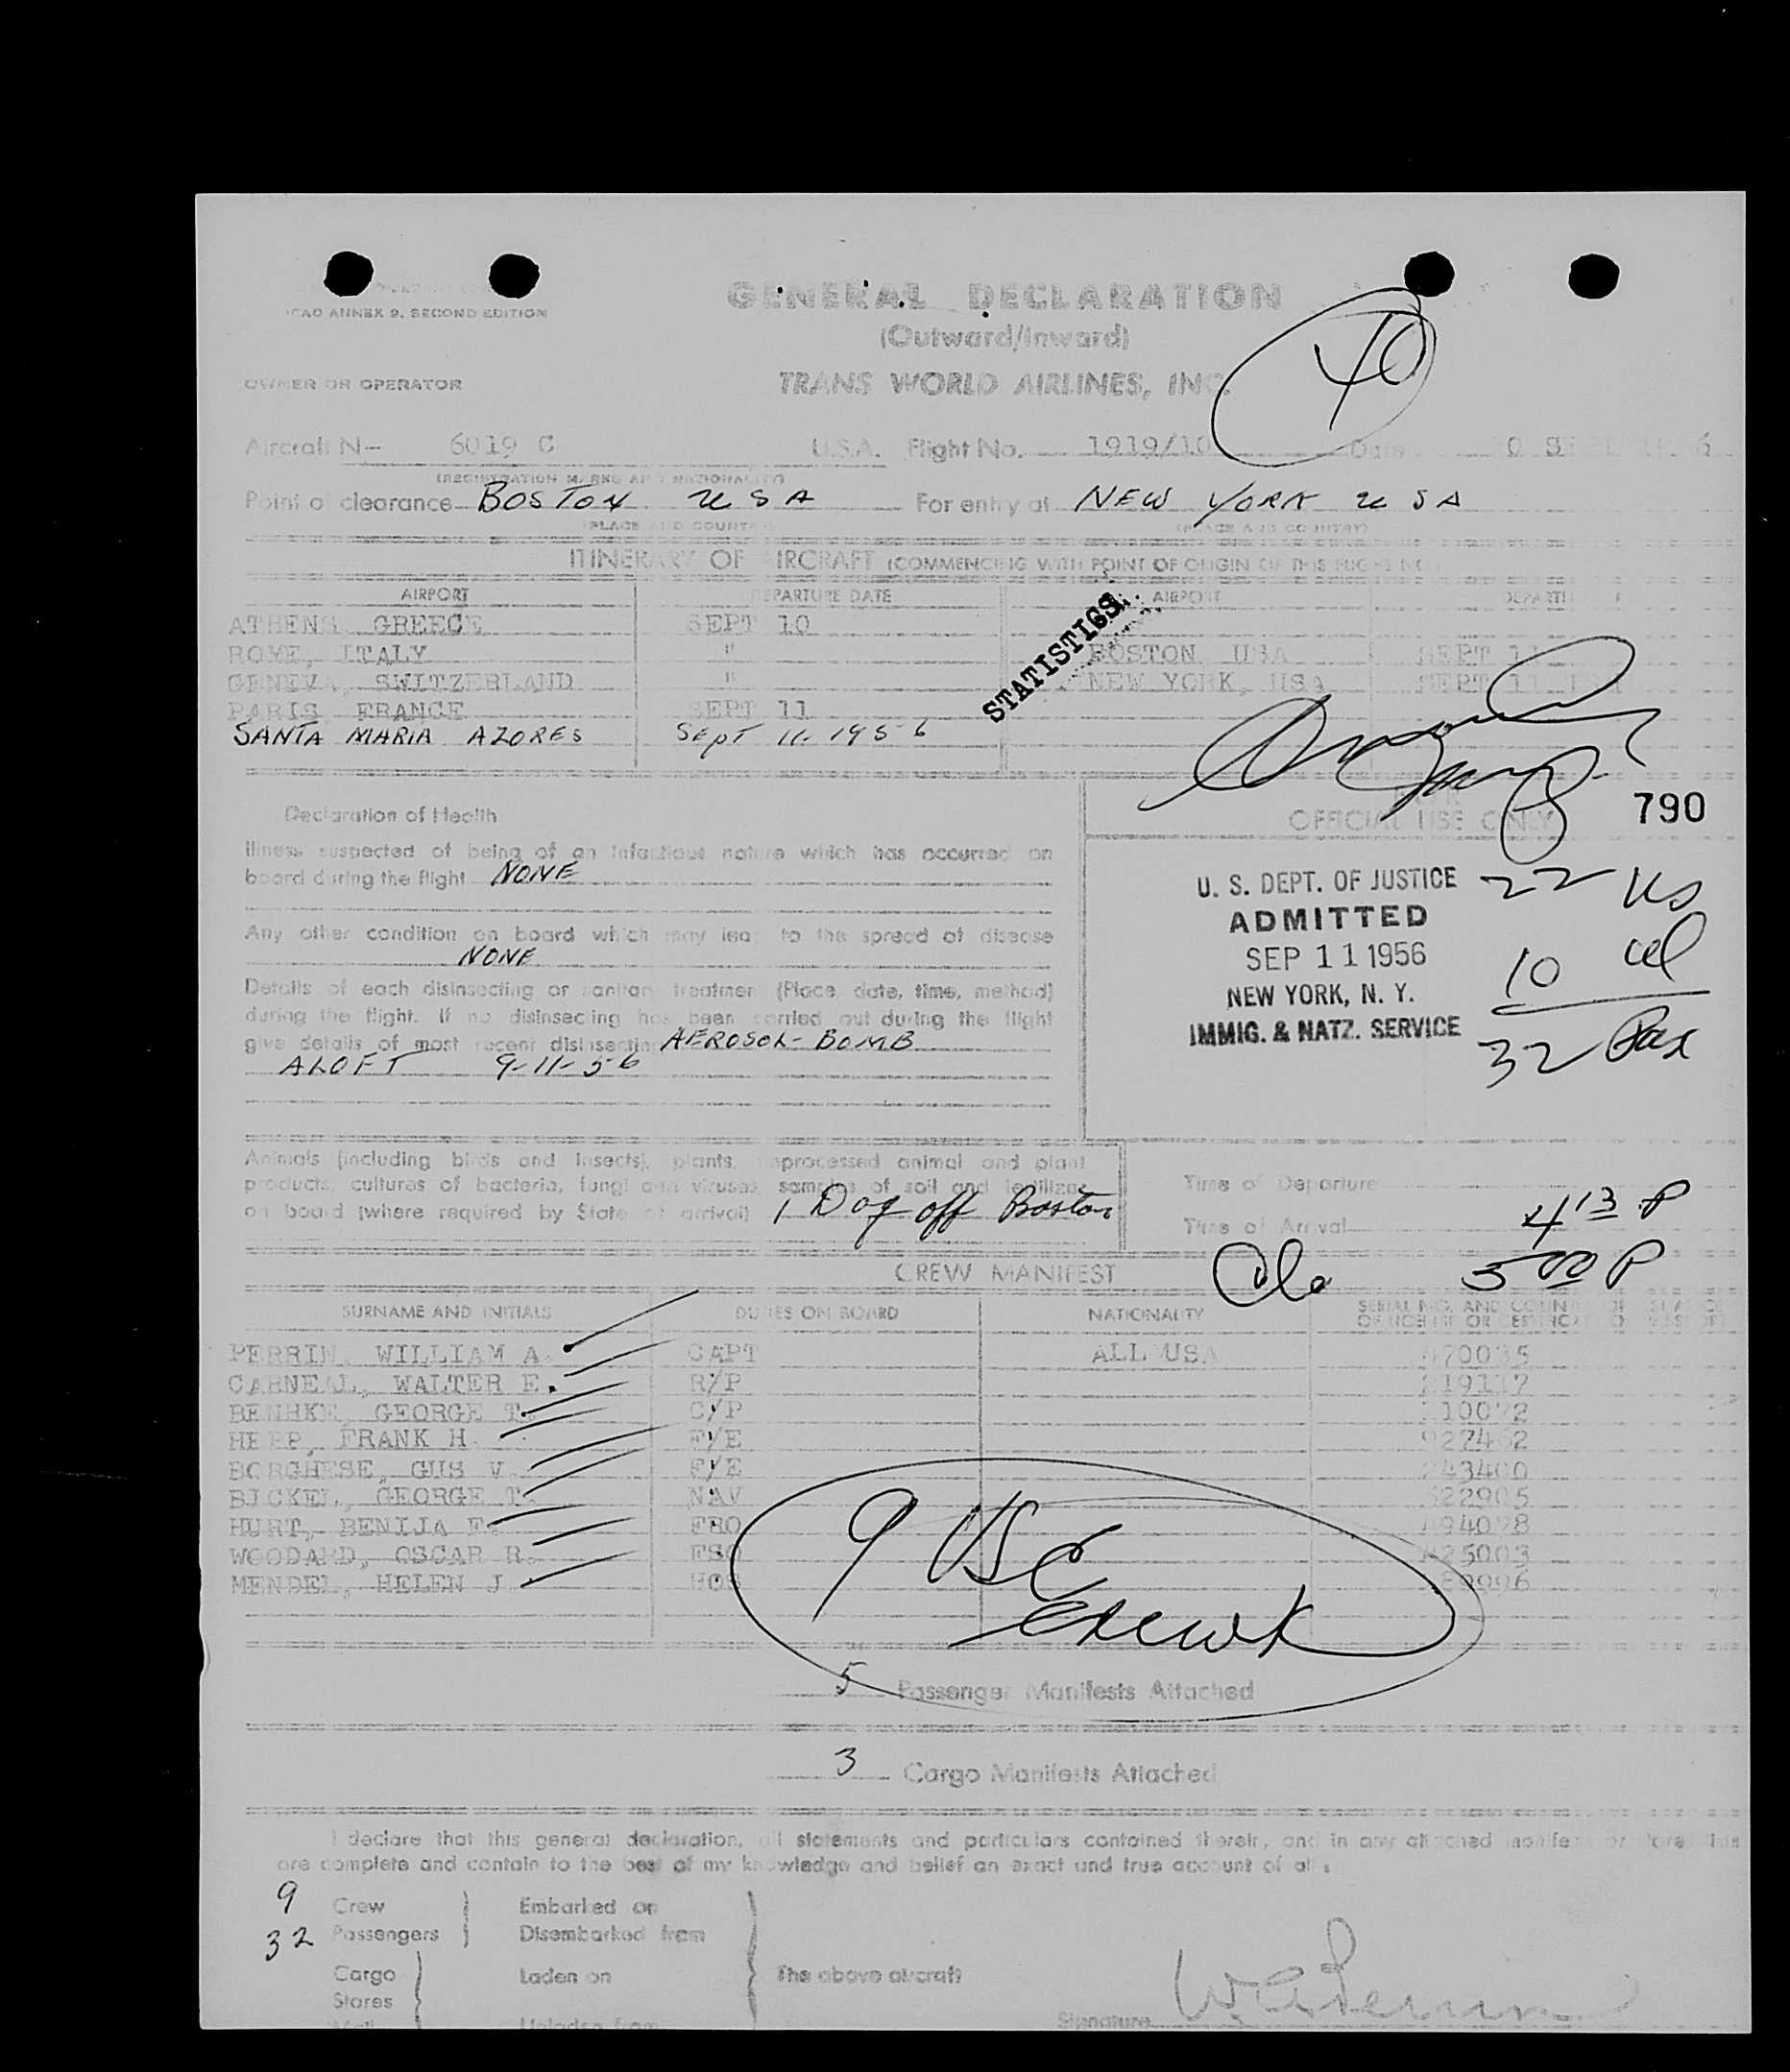 ICAO ANNEX 9, SECOND EDITION
GENERAL DECLARATION
(Outward/Inward)
40
OWNER OR OPERATOR
TRANS WORLD AIRLINES, INC.
Aircraft N- 6019 C U.S.A. Flight No. 1919/10 Date
(REGISTRATION MARKS AND NATIONALITY)
Point of clearance BOSTON USA For entry at NEW YORK USA
(PLACE AND COUNTRY) (PLACE AND COUNTRY)
ITINERARY OF AIRCRAFT (COMMENCING WITH POINT OF ORIGIN OF THIS FLIGHT NO
AIRPORT DEPARTURE DATE AIRPORT
STATISTICS
ATHENS GREECE SEPT 10
ROME, ITALY " BOSTON USA SEPT 11
GENEVA, SWITZERLAND " NEW YORK, USA SEPT 11
PARIS FRANCE SEPT 11
SANTA MARIA AZORES SEPT 11 1956
FOR
OFFICIAL USE ONLY
790
Declaration of Health
Illness suspected of being of an infectious nature which has occurred on
board during the flight NONE
Any other condition on board which may lead to the spread of disease
NONE
Details of each disinsecting or sanitary treatment (Place, date, time, method)
during the flight. If no disinsecting has been carried out during the flight
give details of most recent disinsecting AEROSOL-BOMB
ALOFT 9-11-56
U. S. DEPT. OF JUSTICE
ADMITTED
SEP 11 1956
NEW YORK, N. Y.
IMMIG. & NATZ. SERVICE
22 US
10 al
32 Pax
Animals (including birds and insects), plants, unprocessed animal and plant
products, cultures of bacteria, fungi and viruses, samples of soil and fertilizer
on board (where required by State of arrival) 1 Dog off Boston
Time of Departure
Time of Arrival 4 13 P
5 00 P
CREW MANIFEST
SURNAME AND INITIALS DUTIES ON BOARD NATIONALITY
PERRIN, WILLIAM A. CAPT ALL USA
CARNEAL, WALTER E. R/P
BENHKE, GEORGE T. C/P
HEPP, FRANK H. F/E
BORGHESE, GUS V. F/E
BICKEL, GEORGE T. NAV
HURT, BENIJA F.
WOODARD, OSCAR R.
MENDEL, HELEN J
9 USC
Crew
5 Passenger Manifests Attached
3 Cargo Manifests Attached
I declare that this general declaration, all statements and particulars contained therein, and in any attached
are complete and contain to the best of my knowledge and belief an exact and true account of all
9 Crew Embarked on
32 Passengers Disembarked from
Cargo Laden on The above aircraft
Stores
Mail Unladen from Signature W A Perrin